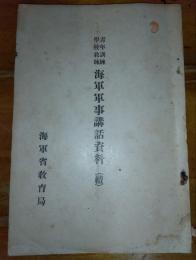 青年訓練
學校教練
海軍軍事講話資料
海軍省教育局